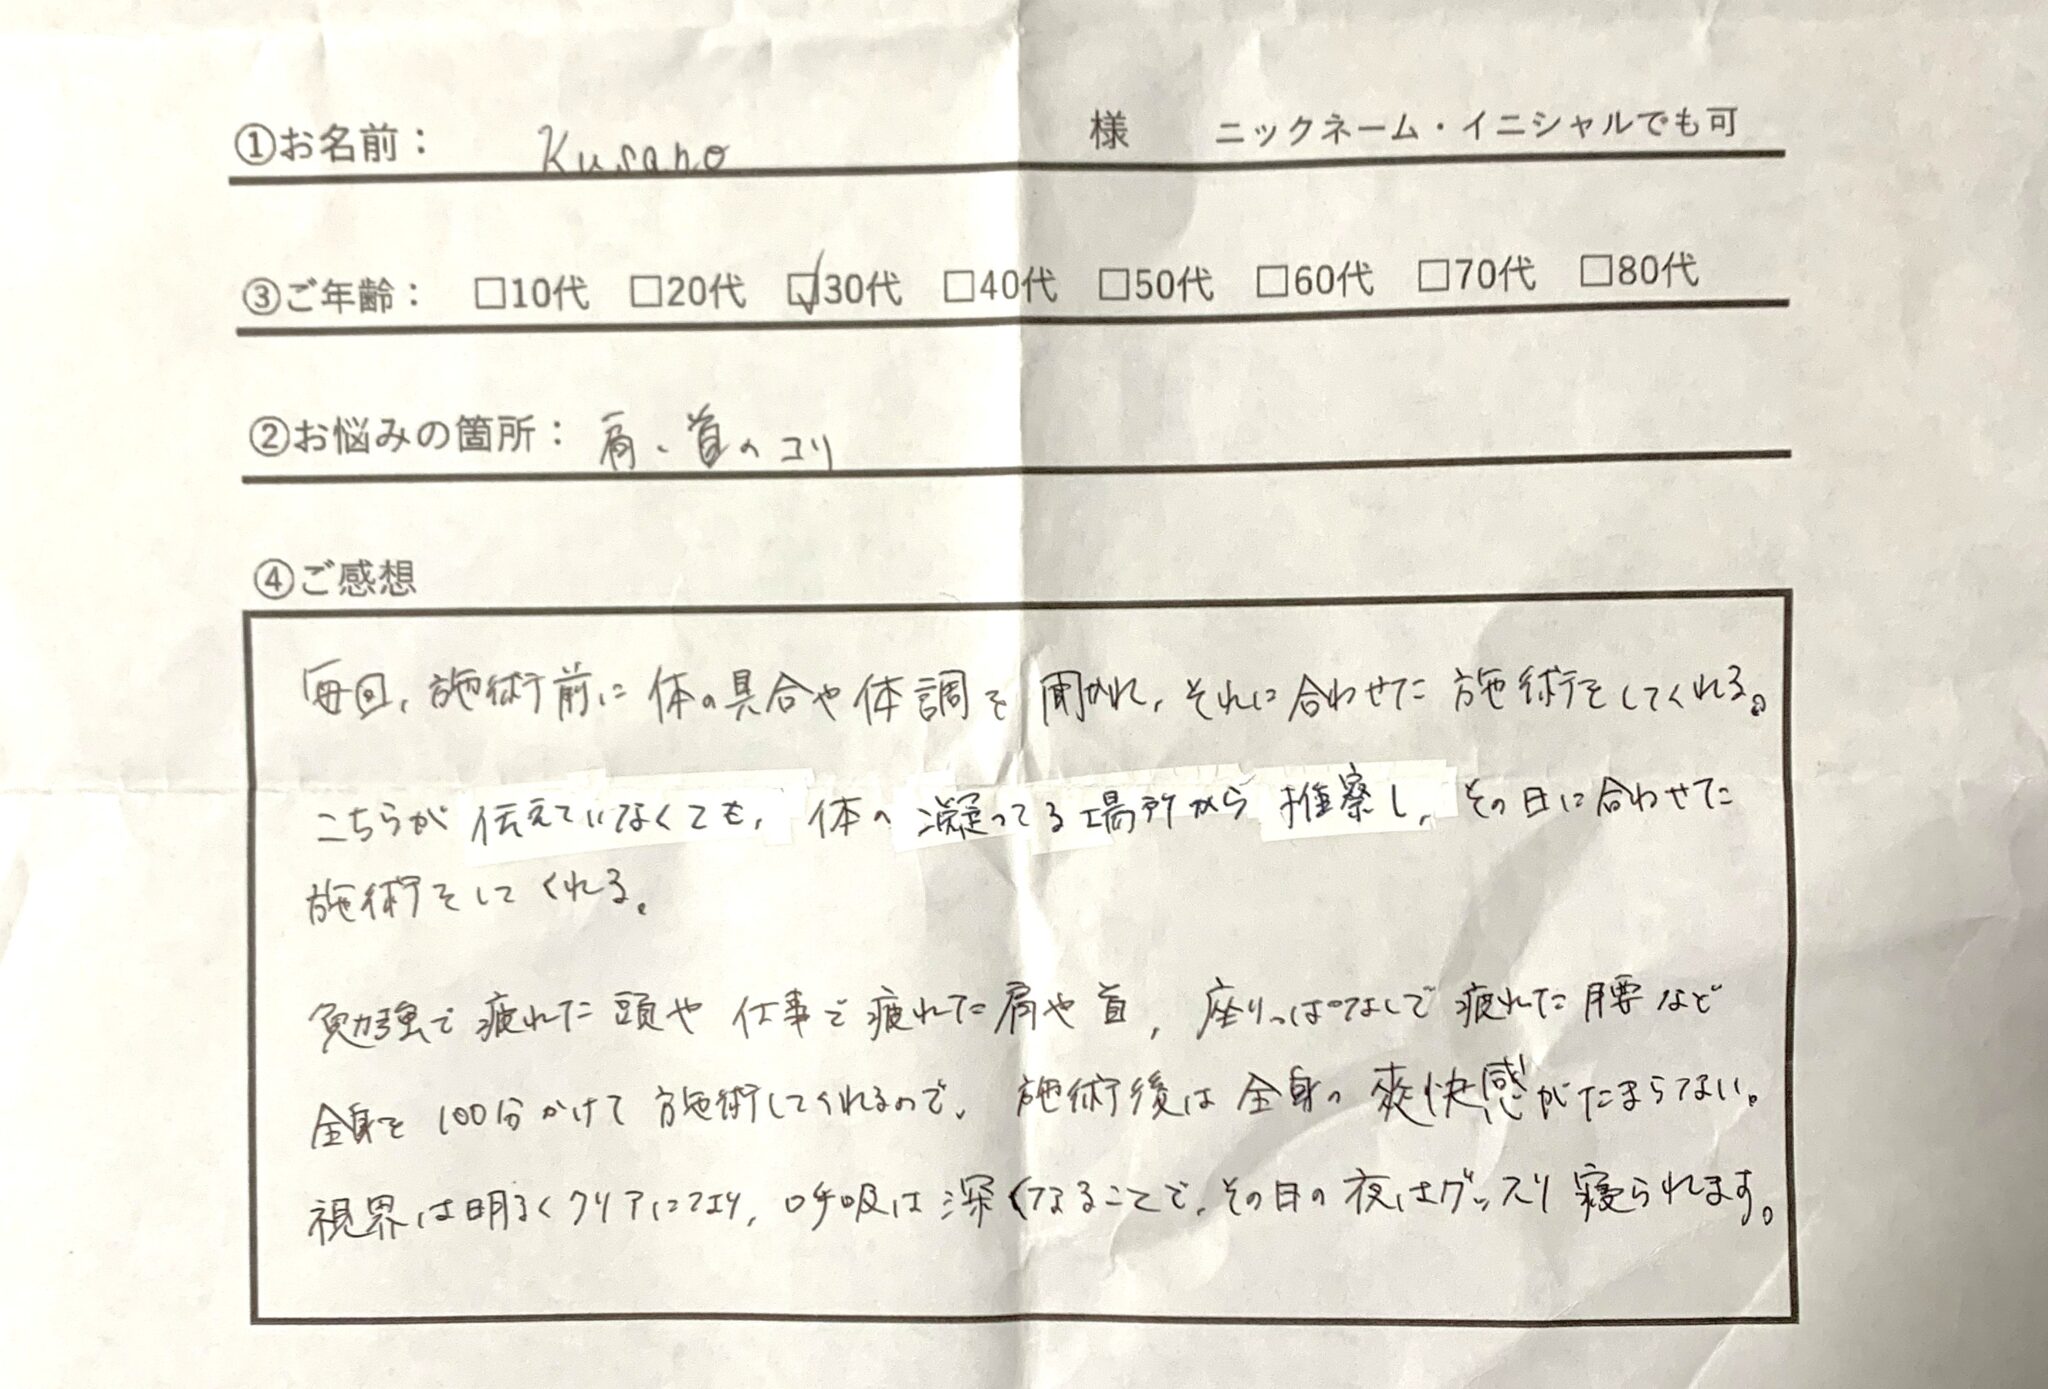 ①お名前： Kusano 様 ニックネーム・イニシャルでも可
③ご年齢： □10代 □20代 ☑30代 □40代 □50代 □60代 □70代 □80代
②お悩みの箇所： 肩、首のコリ
④ご感想
毎回、施術前に体の具合や体調を聞かれ、それに合わせた施術をしてくれる。
こちらが伝えていなくても、体の凝ってる場所から推察し、その日に合わせた
施術をしてくれる。
勉強で疲れた頭や仕事で疲れた肩や首、座りっぱなしで疲れた腰など
全身を100分かけて施術してくれるので、施術後は全身の爽快感がたまらない。
視界は明るくクリアになり、呼吸は深くなることで、その日の夜はグッスリ寝られます。